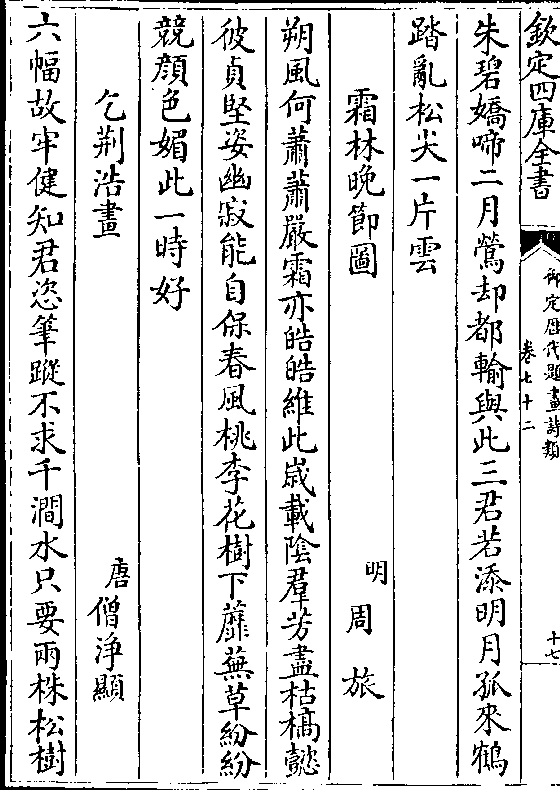 欽定四庫全書
御定歴代題畫詩類
卷七十二
十七
朱碧嬌啼二月鶯却都輸與此三君若添明月孤來鶴
踏亂松尖一片雲
霜林晚節圖
明 周旅
朔風何蕭蕭嚴霜亦皓皓維此歳載陰羣芳盡枯槁懿
彼貞堅姿幽寂能自保春風桃李花樹下蘼蕪草紛紛
競顔色媚此一時好
乞荆浩畫
唐 僧淨顯
六幅故牢健知君恣筆蹤不求千澗水只要兩株松樹